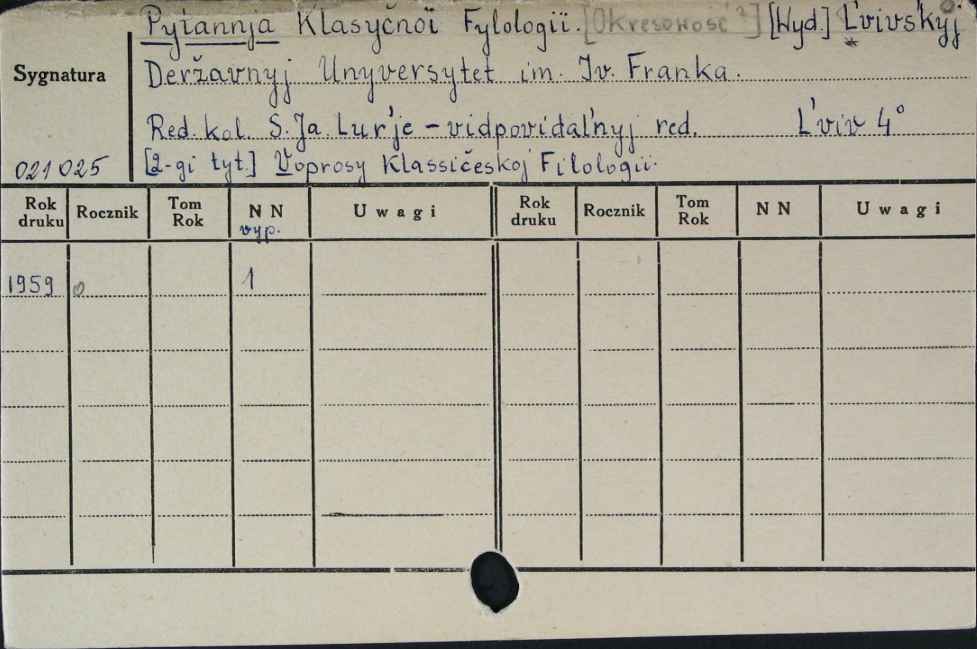 Pytannja Klasyčnoï Fylologiï. [Okresowość?] [Wyd.] L'vivs'kyj
Sygnatura
Deržavnyj Unyversytet im. Iv. Franka.
Red. kol. S. Ja. Lur'je – vidpovidal'nyj red. L'viv 4°
021025
[2-gi tyt.] Voprosy Klassičeskoj Filologii.
Rok druku Rocznik Tom Rok N N Uwagi Rok druku Rocznik Tom Rok N N Uwagi
vyp.
1959 0 1